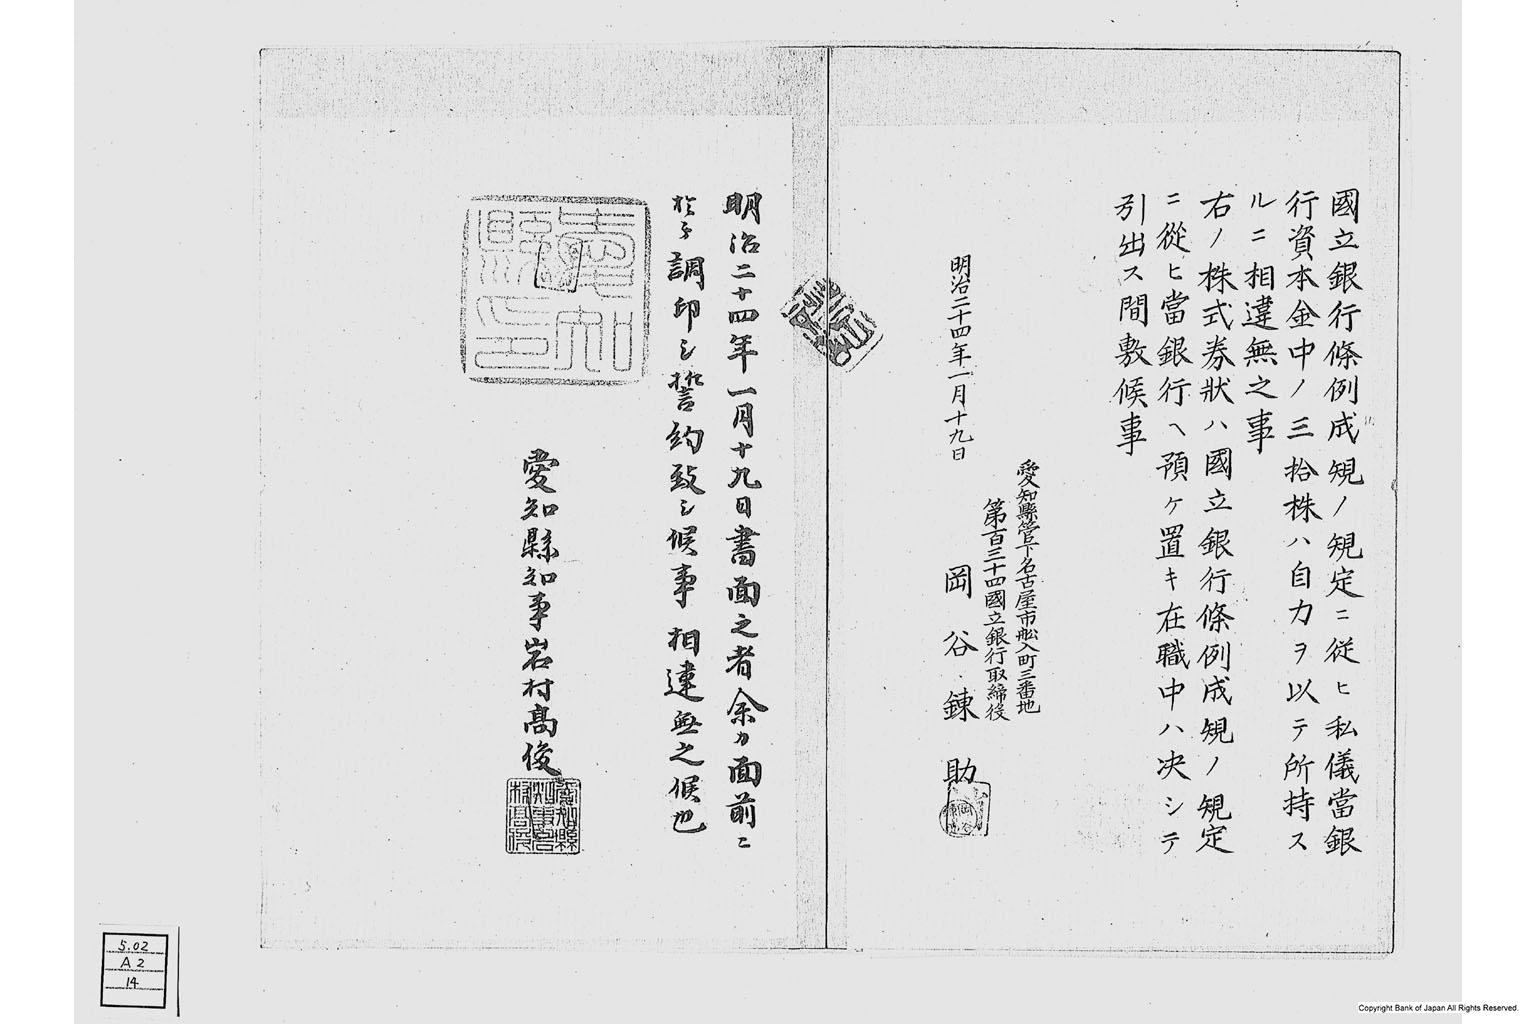 國立銀行條例成規ノ規定ニ從ヒ私儀當銀
行資本金中ノ三拾株ハ自力ヲ以テ所持ス
ルニ相違無之事
右ノ株式券狀ハ國立銀行條例成規ノ規定
ニ從ヒ當銀行ヘ預ケ置キ在職中ハ决シテ
引出ス間敷候事
愛知縣管下名古屋市舩入町三番地
第百三十四國立銀行取締役
岡谷鍊助
明治二十四年一月十九日
明治二十四年一月十九日書面之者余カ面前ニ
於テ調印シ誓約致シ候事相違無之候也
愛知縣知事岩村高俊
愛知縣印
5.02
A2
14
Copyright Bank of Japan All Rights Reserved.